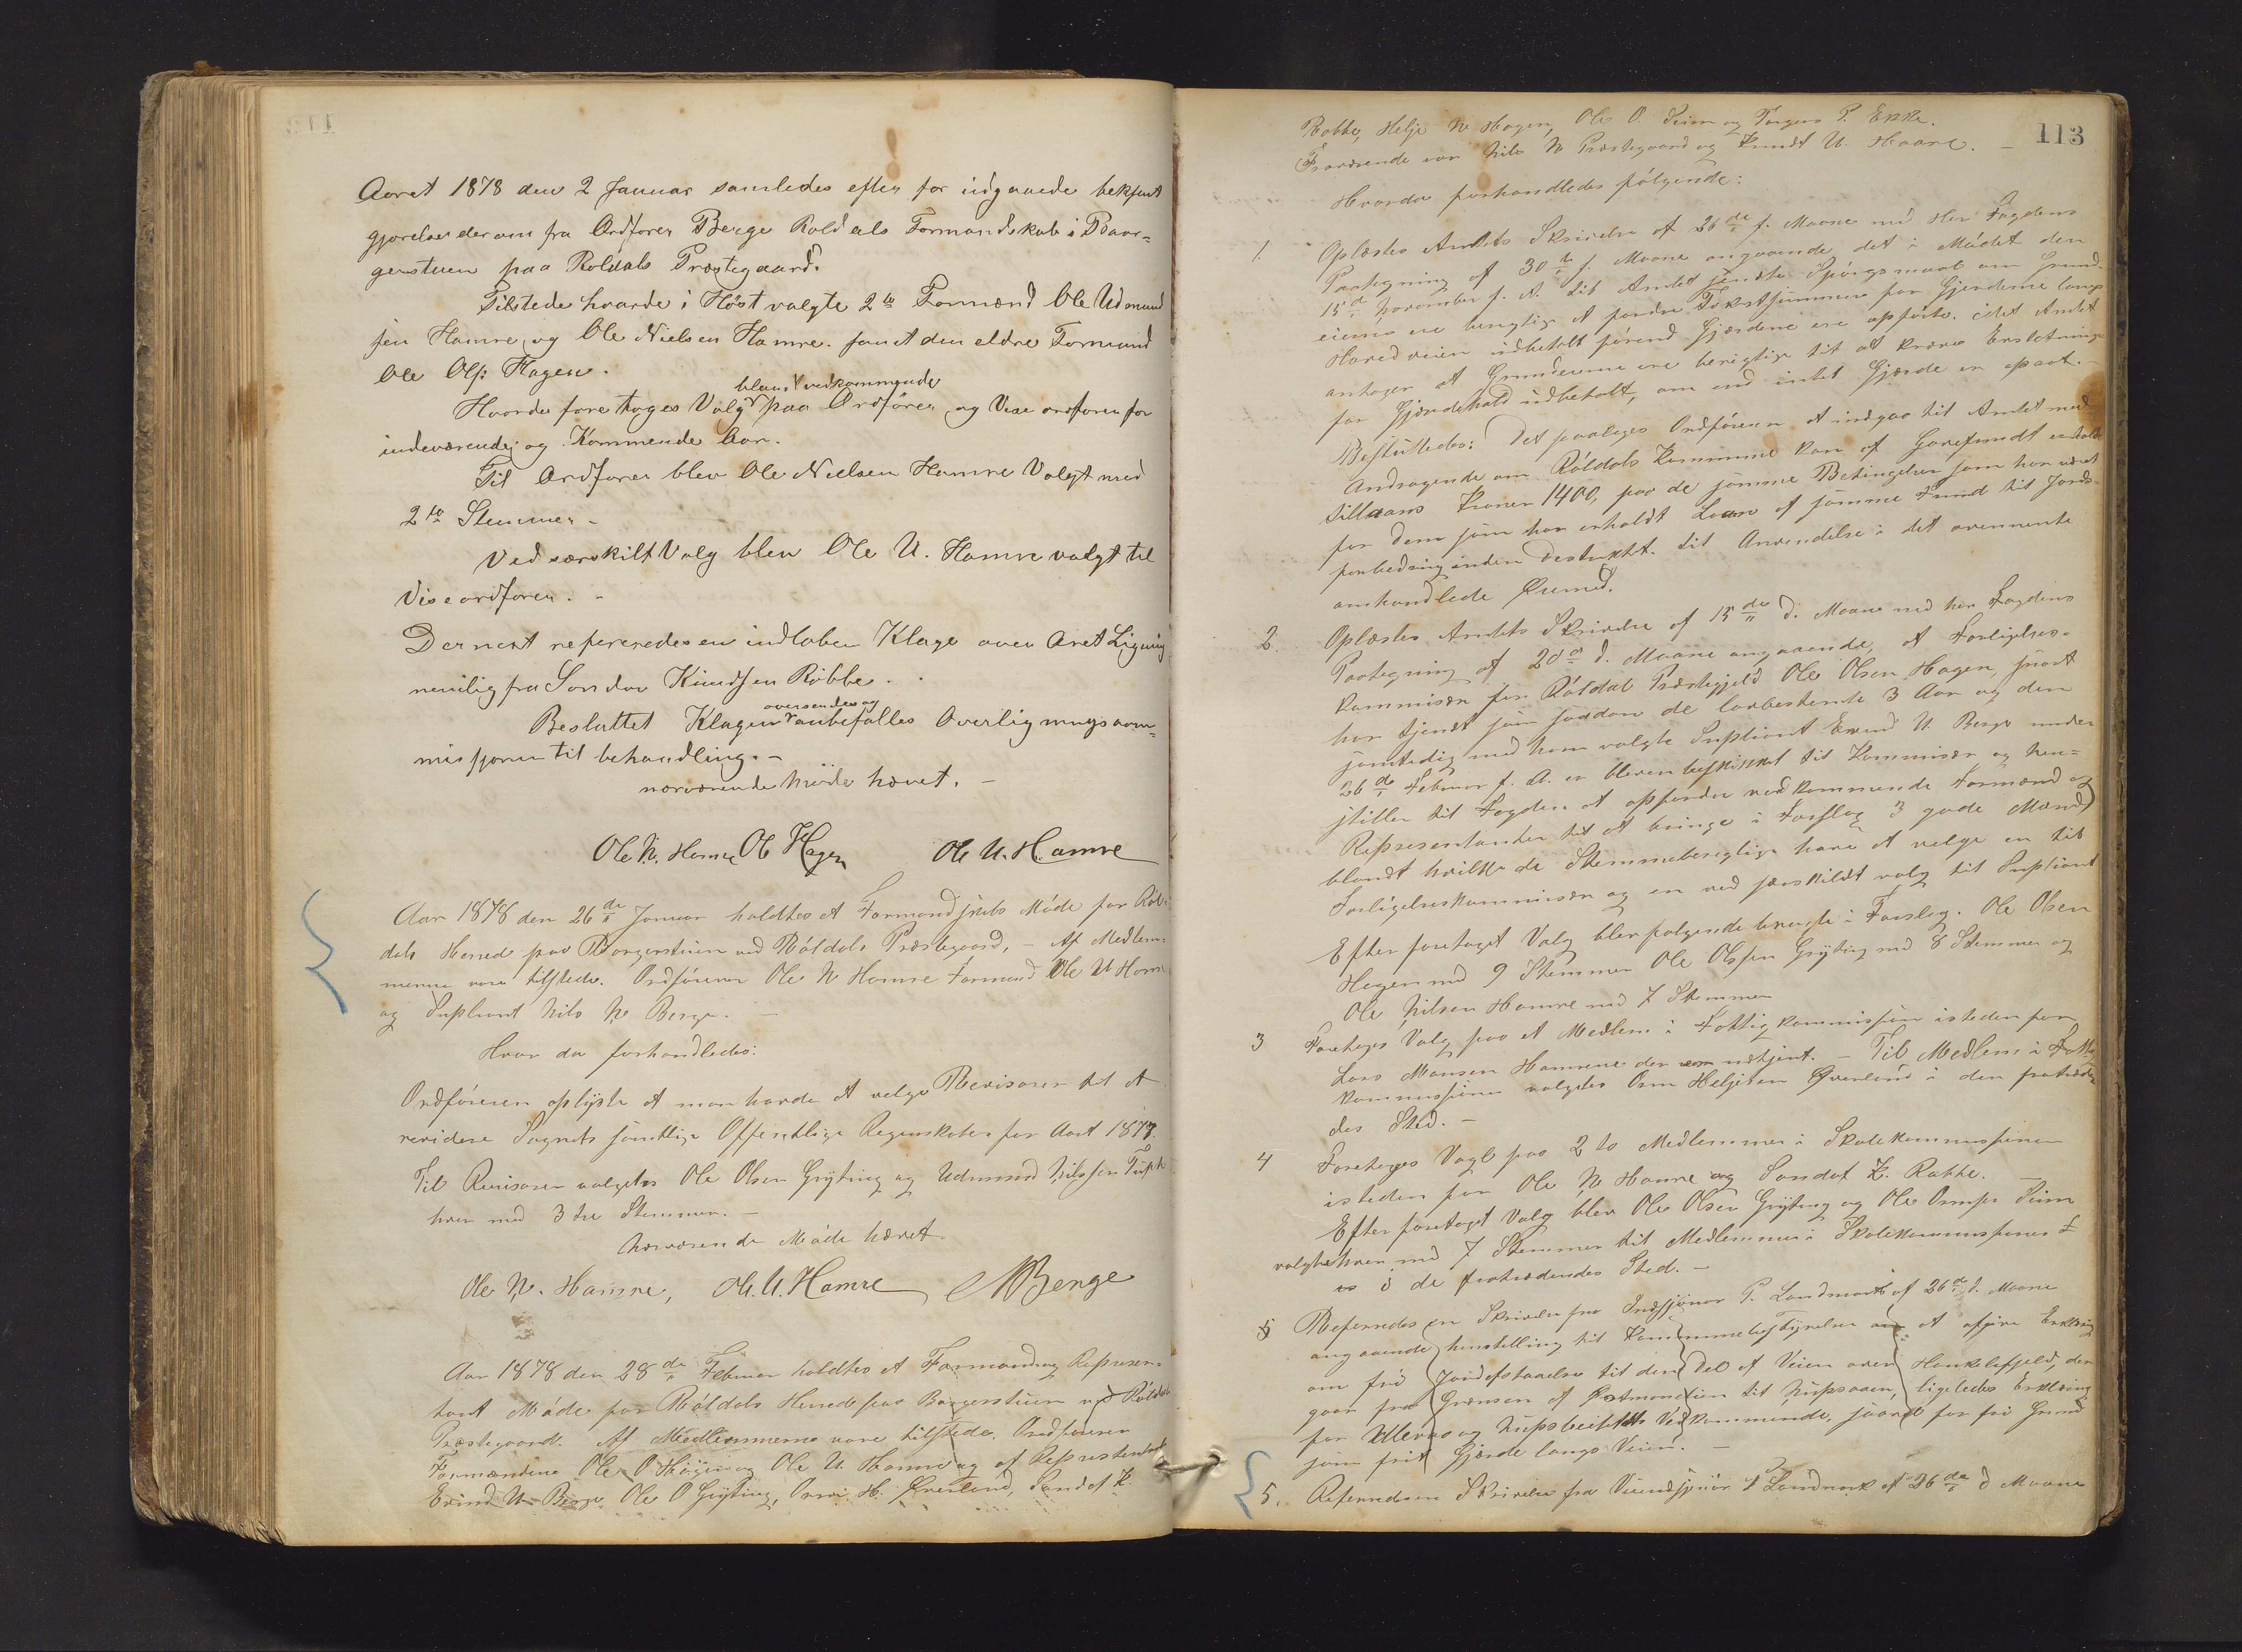 Aaret 1878 den 2 Januar samledes efter for udgaaede bekjent
gjørelse derom fra Ordfører Berge Roldals Formandskab i Baar-
gerstuen paa Roldals Præstegaard.
Tilstede hvarde i Høst valgte 2to Formænd Ole Udmund
sen Hamre, og Ole Nielsen Hamre. samt den eldre Formand
Ole Ols: Hagen.
blandt vedkommende
Hvorda foretoges Valg paa Ordfører og Vise ordfører for
indeværende og Kommende Aar.
Til Ordfører blev Ole Nielsen Hamre Valgt med
2to Stemmer -
Ved særskilt Valg blev Ole U. Hamre valgt til
Viseordfører. -
Dernest refereredes en indløben Klage over Aaret Ligning
nemlig fra Sondov Knudsen Röbbe.
oversendes og
Besluttet Klagen anbefalles Overligningscom-
misjonen til behandling. -
nærværende Møde hævet. -
Ole N. Hamre Ol Hagen Ole U. Hamre
Aar 1878 den 26de Januar holdtes et Formandskabs Møde for Röl-
dals Herred paa Borgerstuen ved Röldals Præstegaard. - Af Medlem-
merne vare tilstede. Ordføreren Ole N Hamre Formand Ole U Hamre
og Supliant Nils N. Berge. -
Hvor da forhandledes:
Ordføreren oplyste at man havde at velge Revisorer til at
revidere Sognets samtlige Offentlige Regnskaber for Aaret 1877.
Til Revisorer valgtes Ole Olsen Gryting og Udmund Nilssen
hver med 3 tre Stemmer. -
Nærværende Møde hævet.
Ole N. Hamre, Ole. U. Hamre NNBerge
Aar 1878 den 28de Februar holdtes et Formand og Represen-
tant Møde for Röldals Herred paa Borgerstuen ved Röldals
Præstegaard. Af Medlemmerne vare tilstede. Ordføreren
Formændene Ole O Hagen og Ole U. Hamre og af Representanter
Evind U. Berge Ole O Gryting, Orm H. Øverland, Sandof K.
113
Rabbe, Helje N Hagen, Ole O. Seim og Torgers P.
Fraværende var Nils N Præstegaard og Knudt U. Haare. -
Hvorda forhandledes følgende:
1. Oplæstes Amtets Skrivelse af 26de f. Maane med Her Fogdens
Paategning af 30te f. Maane angaaende det i Mødet den
15de November f. A. til Amtet sendte Spørgsmaal om Grund-
eierne ere berettige at fordre Takstsummen for Gjerderne langs
Hovedveien udbetalt førend Gjerderne ere opførte. idet Amtet
antager at Grundeierne ere berettige til at kræve Erstatninge
for Gjerdehold udbetalt, om end intet Gjerde er opsat. -
Besluttedes: Det paalæges Ordføreren at indgaa til Amtet med
Andragende om Röldals Kommune kan af Gavefundt erholde
tillaans Kroner 1400, paa de samme Betingelser som har været
for dem som har erholdt Laan af samme Fund til Jords-
forbedring inden til Anvendelse i det ovennevnte
omhandlede Øiemed.
2. Oplæstes Amtets Skrivelse af 15de d. Maane med her Fogdens
Paategning af 20de d. Maane angaaende, at Forligelses-
kommisær for Röldal Præstegjeld Ole Olsen Hagen, snart
har tjendt som saadan de lovbestemte 3 Aar og den
samtidig med ham valgte Supliant Evind U. Berge under
26de Februar f. A. er bleven beskikket til Kommisær og hen-
stiller til Fogden at opfordre vedkommende Formænd og
Representanter til at bringe i Forslag 3 gode Mænd
blandt hvilke de Stemmeberegtige have at velge en til
Forligelseskommisær og en ved særskildt valg til Supliant
Efter foretaget Valg blev følgende bragte i Forslag. Ole Olsen
Hagen med 9 Stemmer Ole Olssen Gryting med 8 Stemmer og
Ole Nilsen Hamre med 7 Stemmer
3 Foretoges Valg paa et Medlem i Fattigkommissjonen isteden for
Lars Monsen Hamrene der udtjent. - Til Medlem i Fattig
kommissjonen valgtes Orm Heljesen Øverland i den fratræden
des Sted. -
4 Foretoges Valg paa 2 to Medlemmer i Skolekommissjonen
isteden for Ole N Hamre og Sandof K. Rabbe. -
Efter foretaget Valg blev Ole Olsen Gryting og Ole Seim
valgte hver med 7 Stemmer til Medlemmer i Skolekommissjonen
i de fratrædendes Sted. -
5 Referredes en Skrivelse fra Indsjønør P. Landmark af 26de d. Maane
angaaende henstilling til Kommunebestyrelsen at afgive Erklæring
om fri Jordafstaaelse til den Del af Veien over Haukelifjeld, der
gaar fra Grænsen af til Nupsaaen, ligeledes Erklæring
for og Vedkommende, saavel for fri Grund
som frit Gjerde langs Veien. -
5. Referredes en Skrivelse fra P Landmark af 26de d Maane